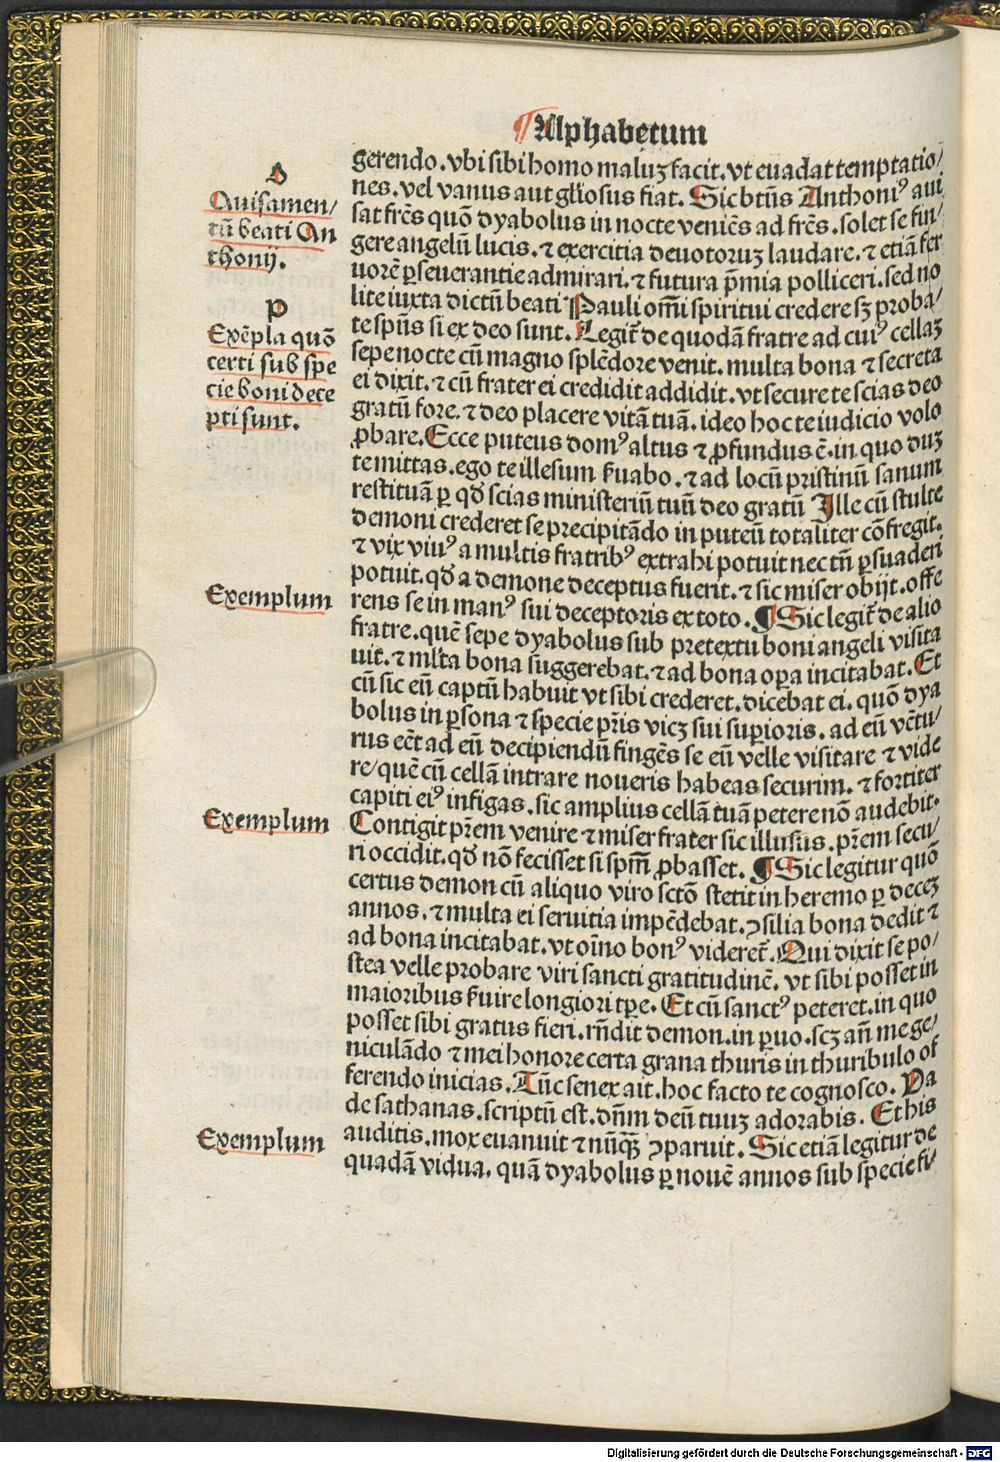 ¶Alphabetum
D
Auisamen/
tũ beati An
thonij.
P
Exẽpla quõ
certi sub spe
cie boni dece
pti sunt.
Exemplum
Exemplum
Exemplum
gerendo. vbi sibi homo maluʒ facit. vt euadat temptatio/
nes. vel vanus aut gl̃iosus fiat. Sic btũs Anthoniꝰ aui
sat frẽs quõ dyabolus in nocte veniẽs ad frẽs. solet se fin/
gere angelũ lucis. ⁊ exercitia deuotoruʒ laudare. ⁊ etiã fer
uorẽ ꝑseuerantie admirari. ⁊ futura p̃mia polliceri. sed no
lite iuxta dictũ beati Pauli om̃i spiritui credere sʒ proba/
te spũs si ex deo sunt. Legit᷑ de quodã fratre ad cuiꝰ cellaʒ
sepe nocte cũ magno splẽdore venit. multa bona ⁊ secreta
ei dixit. ⁊ cũ frater ei credidit addidit. vt secure te scias deo
gratũ fore. ⁊ deo placere vitã tuã. ideo hoc te iudicio volo
ꝓbare. Ecce puteus domꝰ altus ⁊ ꝓfundus ẽ. in quo duʒ
te mittas. ego te illesum ẜuabo. ⁊ ad locũ pristinũ sanum
restituã ꝑ qd̃ scias ministeriũ tuũ deo gratũ Ille cũ stulte
demoni crederet se precipitãdo in puteũ totaliter cõfregit.
⁊ vix viuꝰ a multis fratribꝰ extrahi potuit nec tñ ꝑsuaderi
potuit. qd̃ a demone deceptus fuerit. ⁊ sic miser obijt. offe
rens se in manꝰ sui deceptoris ex toto. ¶ Sic legit᷑ de alio
fratre. quẽ sepe dyabolus sub pretextu boni angeli visita
uit. ⁊ ml̃ta bona suggerebat. ⁊ ad bona oꝑa incitabat. Et
cũ sic eũ captũ habuit vt sibi crederet. dicebat ei. quõ dya
bolus in ꝑsona ⁊ specie pr̃is vicʒ sui suꝑioris. ad eũ vẽtu/
rus eẽt ad eũ decipiendũ fingẽs se eũ velle visitare ⁊ vide
re/quẽ cũ cellã intrare noueris habeas securim. ⁊ fortiter
capiti eiꝰ infigas. sic amplius cellã tuã petere nõ audebit.
Contigit pr̃em venire ⁊ miser frater sic illusus. pr̃em secu/
ri occidit. qd̃ nõ fecisset si spm̃ ꝓbasset. ¶ Sic legitur quõ
certus demon cũ aliquo viro sctõ stetit in heremo ꝑ deceʒ
annos. ⁊ multa ei seruitia impẽdebat. ꝯsilia bona dedit ⁊
ad bona incitabat. vt oĩno bonꝰ videret᷑. Qui dixit se po/
stea velle probare viri sancti gratitudinẽ. vt sibi posset in
maioribus ẜuire longiori tꝑe. Et cũ sanctꝰ peteret. in quo
posset sibi gratus fieri. rñdit demon. in ꝑuo. scʒ añ me ge/
niculãdo ⁊ mei honore certa grana thuris in thuribulo of
ferendo inicias. Tũc senex ait. hoc facto te cognosco. Va
de sathanas. scriptũ est. dñm deũ tuuʒ adorabis. Et his
auditis. mox euanuit ⁊ nũq̃ʒ ꝯparuit. Sic etiã legitur de
quadã vidua. quã dyabolus ꝑ nouẽ annos sub specie fi/
Digitalisierung gefördert durch die Deutsche Forschungsgemeinschaft - DFG